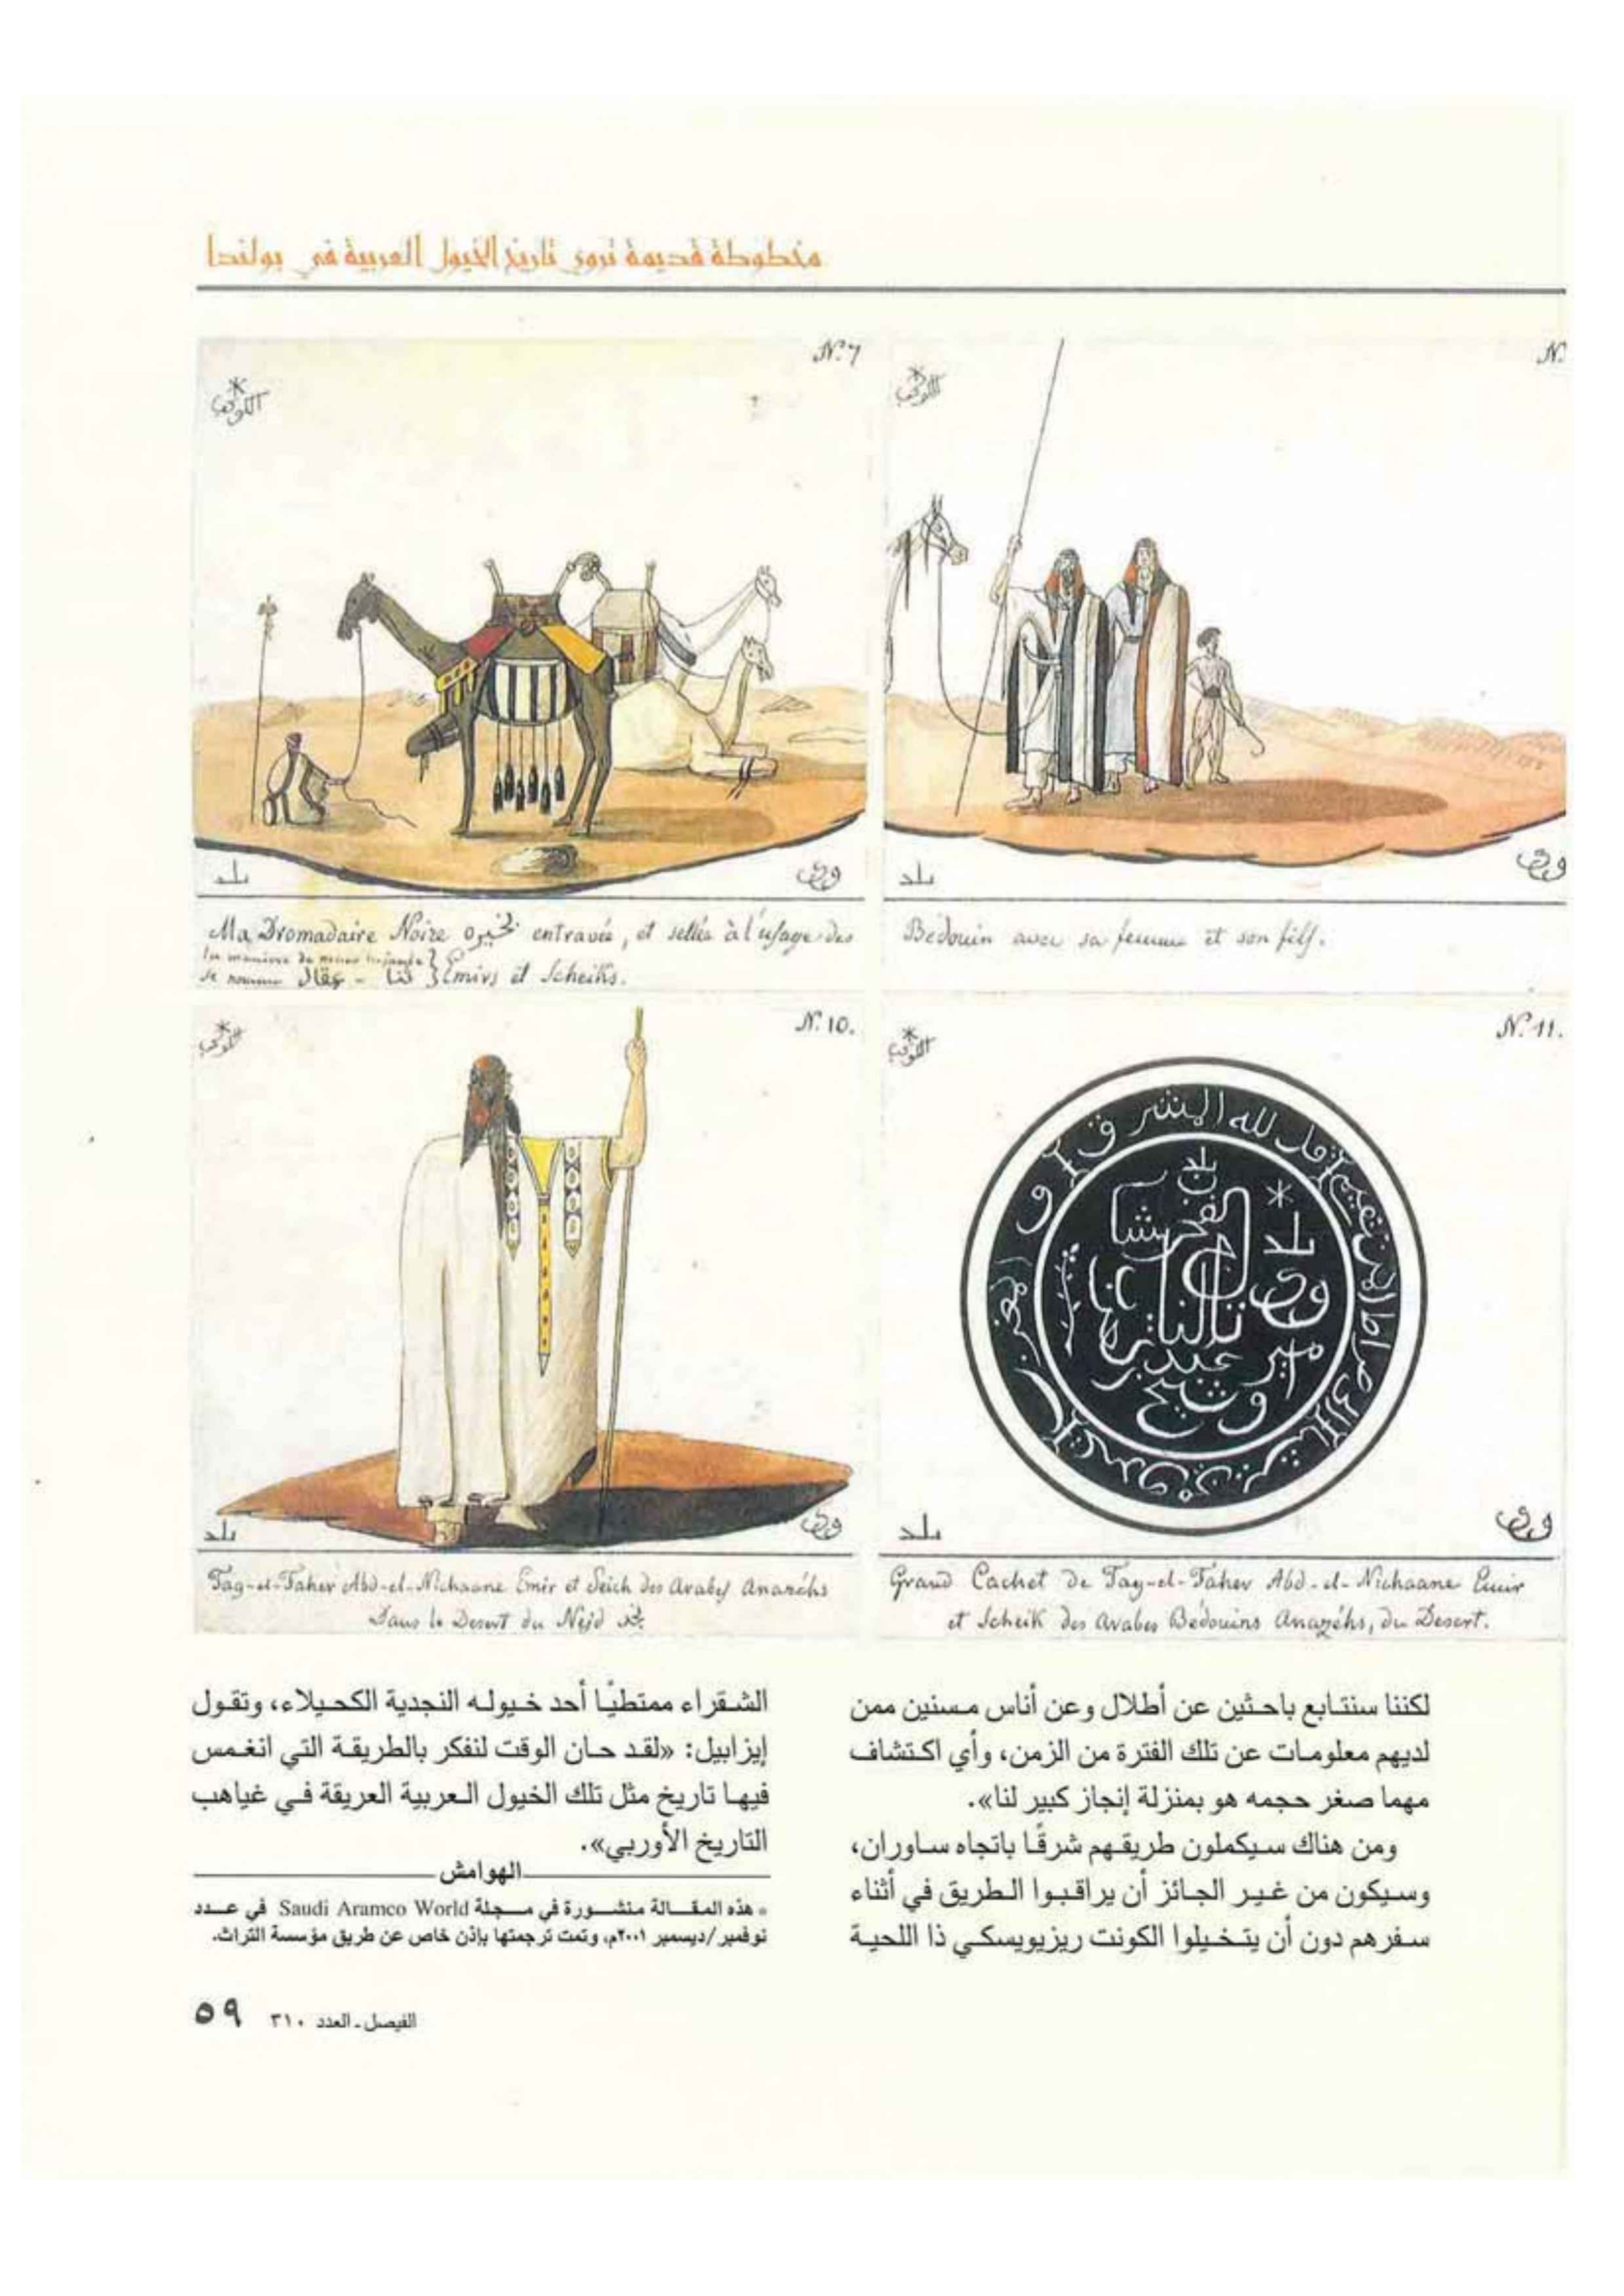 مخطوطة قديمة تروي تاريخ الخيول العربية في بولندا
N.º 7
بلد
Ma Dromadaire Noire entravée, et sellée à l'usage des
Emirs et Scheiks.
se nomme عقال -
N.
بلد
Bédouin avec sa femme et son fils.
N. 10.
بلد
Tag-el-Faher Abd-el-Nichaane Emir et Seich des Arabes Anazéhs
Dans le Desert du Nejd نجد
N.º 11.
بلد
وشيخ
بلد
Grand Cachet De Tag-el-Faher Abd-el-Nichaane Emir
et Scheik des Arabes Bédouins Anazéhs, du Desert.
لكننا سنتابع باحثين عن أطلال وعن أناس مسنين ممن
لديهم معلومات عن تلك الفترة من الزمن، وأي اكتشاف
مهما صغر حجمه هو بمنزلة إنجاز كبير لنا».
ومن هناك سيكملون طريقهم شرقًا باتجاه ساوران،
وسيكون من غير الجائز أن يراقبوا الطريق في أثناء
سفرهم دون أن يتخيلوا الكونت ريزيويسكي ذا اللحية
الشقراء ممتطيًا أحد خيوله النجدية الكحيلاء، وتقول
إيزابيل: «لقد حان الوقت لنفكر بالطريقة التي انغمس
فيها تاريخ مثل تلك الخيول العربية العريقة في غياهب
التاريخ الأوربي».
الهوامش
* هذه المقالة منشورة في مجلة Saudi Aramco World في عدد
نوفمبر/ديسمبر ٢٠٠١م، وتمت ترجمتها بإذن خاص عن طريق مؤسسة التراث.
الفيصل ـ العدد ٣١٠ ٥٩